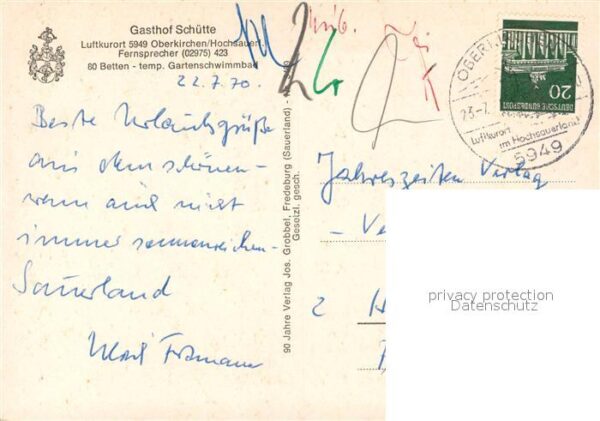 Gasthof Schütte
Luftkurort 5949 Oberkirchen/Hochsauerl.
Fernsprecher (02975) 423
80 Betten - temp. Gartenschwimmbad
22.7.70.
Beste Urlaubsgrüße
aus dem schönen -
wenn auch nicht
immer sonnenreichen -
Sauerland
90 Jahre Verlag Jos. Grobbel, Fredeburg (Sauerland) -
Gesetzl. gesch.
20
DEUTSCHE BUNDESPOST
23.-7.
Luftkurort
im Hochsauerland
5949
Jahreszeiten Verlag
- Ve
2 H
privacy protection
Datenschutz